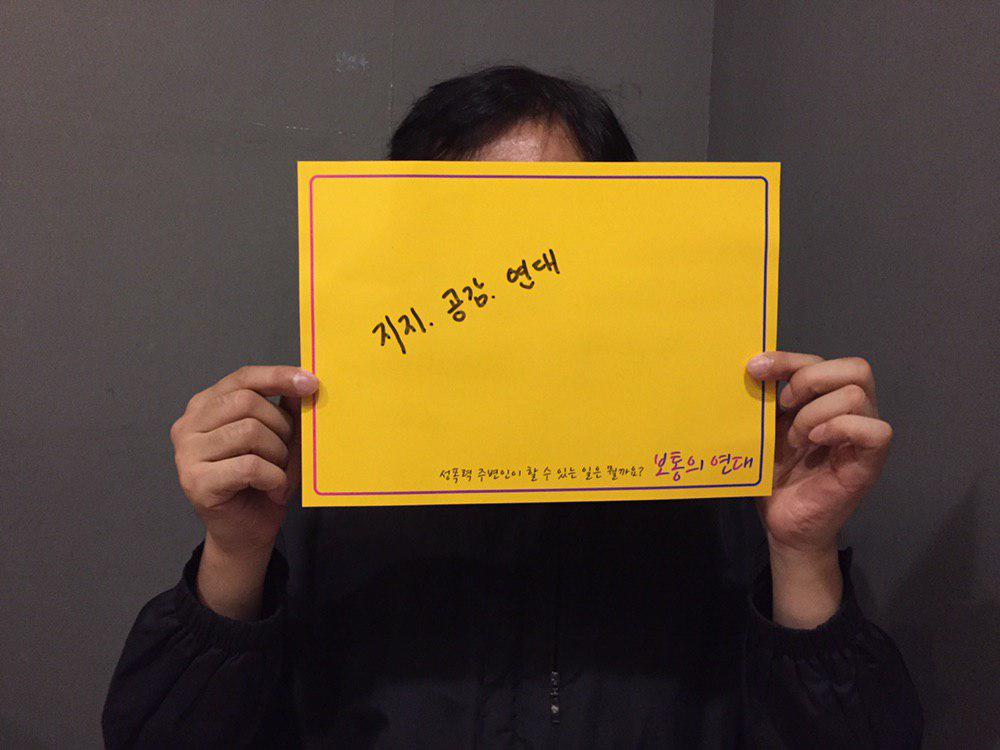 지지. 공감. 연대
성폭력 주변인이 할 수 있는 일은 뭘까요? 보통의 연대